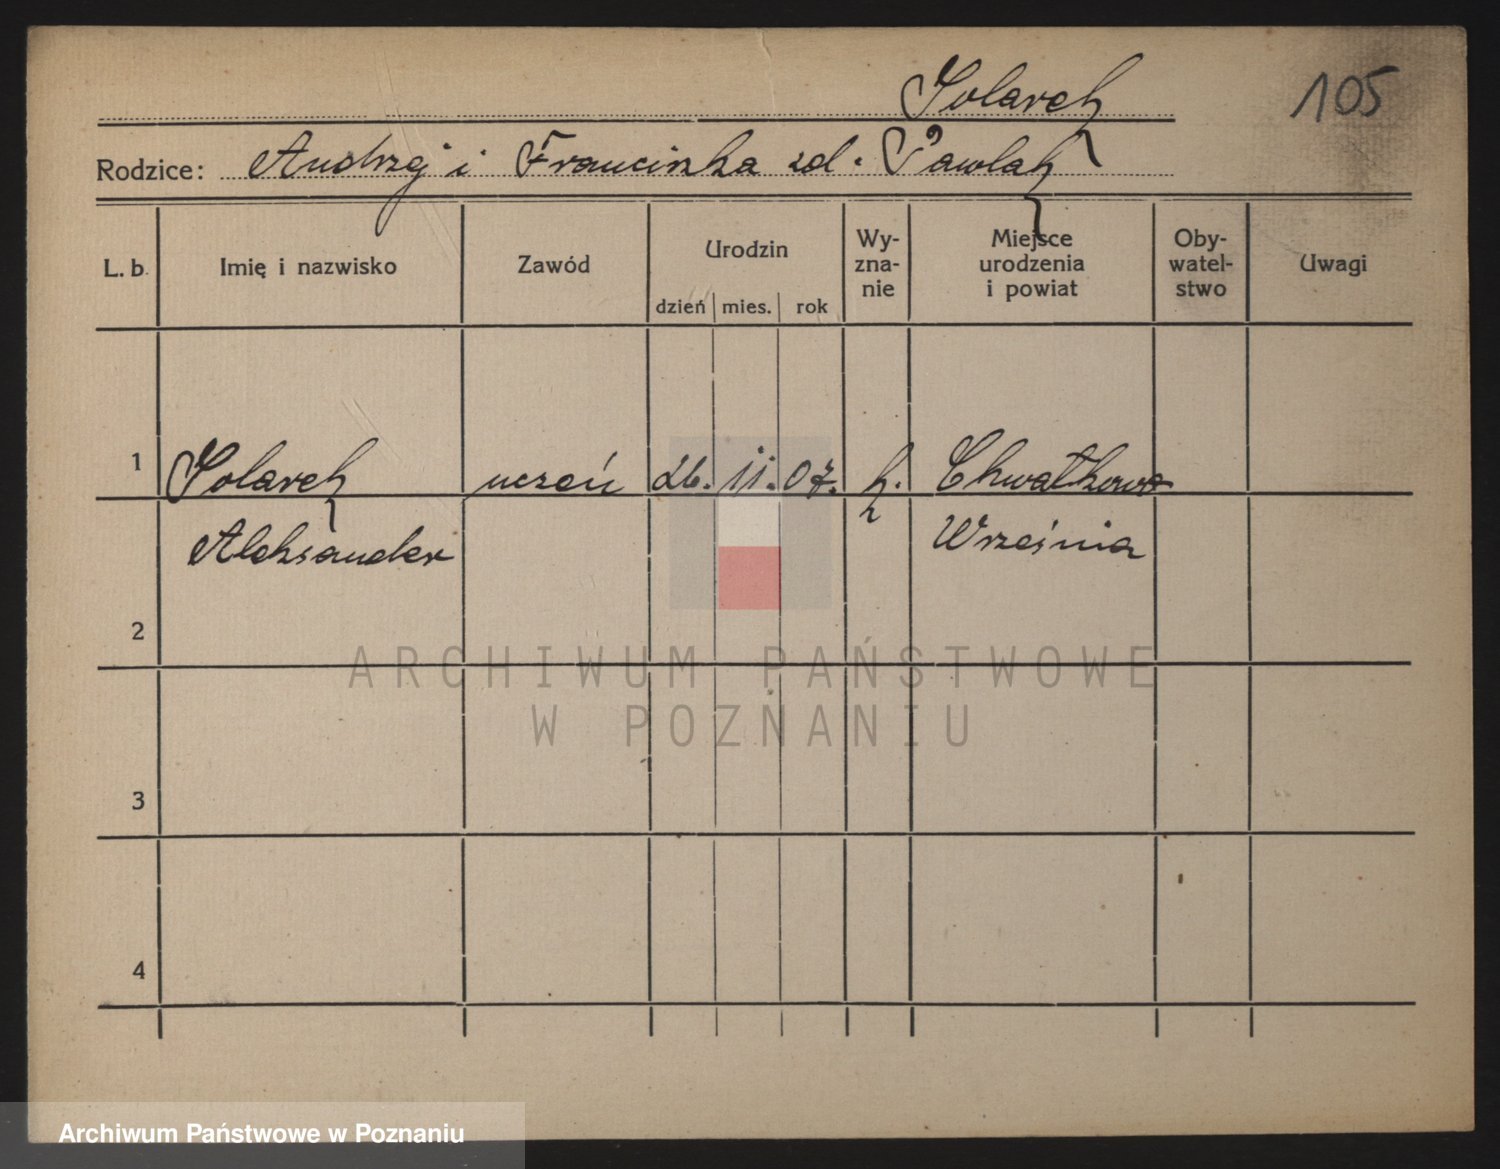 Solarek
105
Rodzice: Andrzej i Franciszka zd. Pawlak
L. b. Imię i nazwisko Zawód Urodzin dzień mies. rok Wy-zna-nie Miejsce urodzenia i powiat Oby-watel-stwo Uwagi
1 Solarek uczeń 26. 11. 07. k. Chwałkowo
Aleksander Września
2
3
4
ARCHIWUM PAŃSTWOWE
W POZNANIU
Archiwum Państwowe w Poznaniu